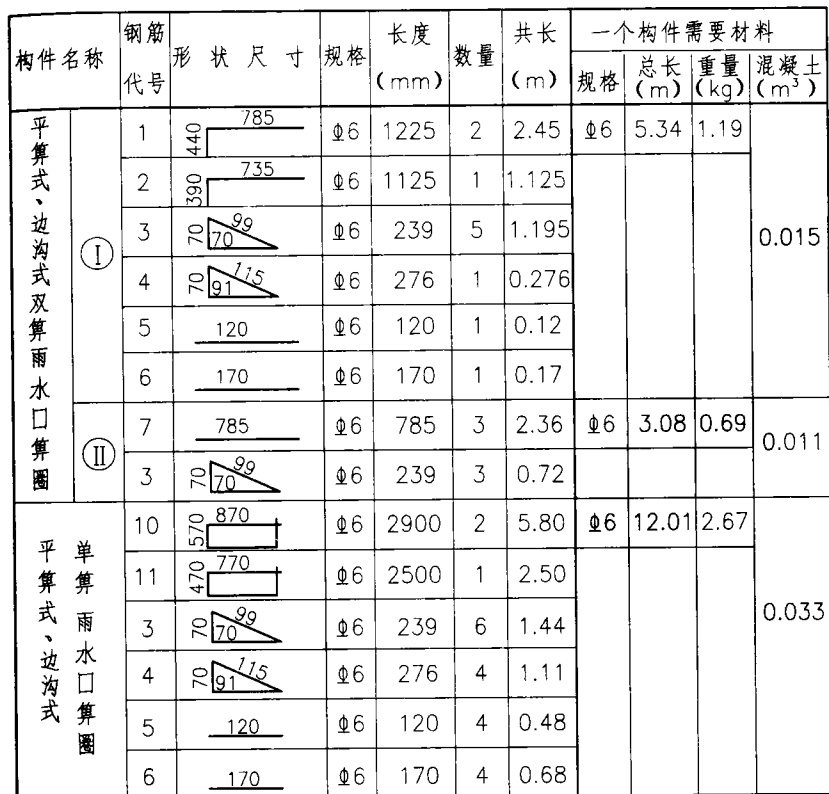 构件名称 钢筋代号 形状尺寸 规格 长度(mm) 数量 共长(m) 一个构件需要材料
规格 总长(m) 重量(kg) 混凝土(m³)
平算式、边沟式双算雨水口算圈
Ⅰ
1 440 785 Φ6 1225 2 2.45 Φ6 5.34 1.19 0.015
2 390 735 Φ6 1125 1 1.125
3 70 70 99 Φ6 239 5 1.195
4 70 91 115 Φ6 276 1 0.276
5 120 Φ6 120 1 0.12
6 170 Φ6 170 1 0.17
Ⅱ
7 785 Φ6 785 3 2.36 Φ6 3.08 0.69 0.011
3 70 70 99 Φ6 239 3 0.72
平算式、边沟式
单算雨水口算圈
10 570 870 Φ6 2900 2 5.80 Φ6 12.01 2.67 0.033
11 470 770 Φ6 2500 1 2.50
3 70 70 99 Φ6 239 6 1.44
4 70 91 115 Φ6 276 4 1.11
5 120 Φ6 120 4 0.48
6 170 Φ6 170 4 0.68